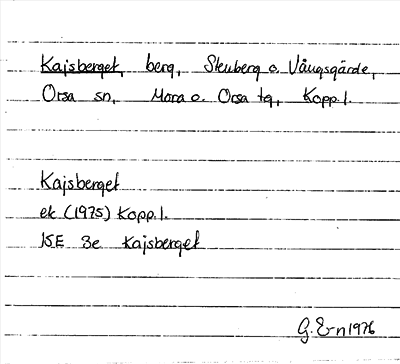 Kajsberget, berg, Stenberg o. Vångsgärde,
Orsa sn, Mora o. Orsa tg, Kopp.l.
Kajsberget
ek (1975) Kopp.l.
15E 3e Kajsberget
G. E-n 1976